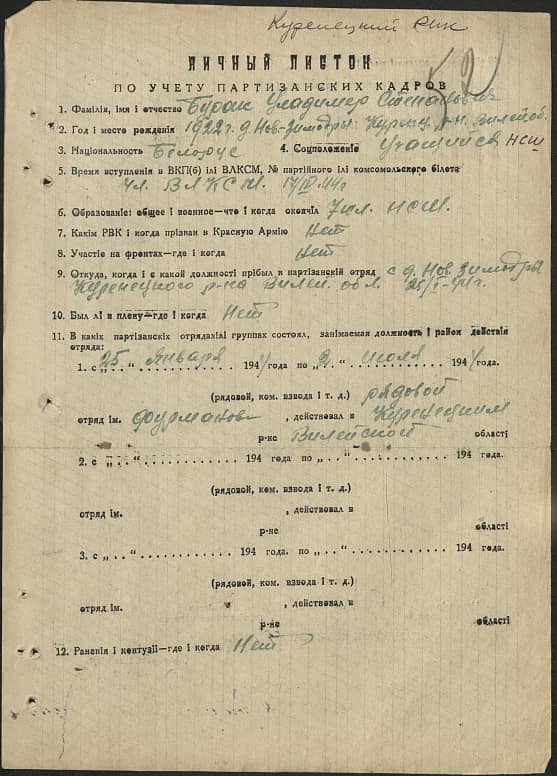 Куренецкий РИК
ЛИЧНЫЙ ЛИСТОК
52
ПО УЧЕТУ ПАРТИЗАНСКИХ КАДРОВ
1. Фамілія, імя і отчество Бурак Уладимер Степанович
2. Год і место рождения 1922 г. д. Нов-Зимодры Куренец. р-н. Вилей об.
3. Національность Белорус 4. Соцположеніе Учащийся НСШ
5. Время вступленія в ВКП(б) ілі ВЛКСМ, № партійного ілі комсомольского білета
чл. ВЛКСМ. 17/IV.44г
6. Образованіе: общее і военное—что і когда окончіл 7 кл. НСШ.
7. Какім РВК і когда прізван в Красную Армію Нет
8. Участіе на фронтах—где і когда Нет
9. Откуда, когда і с какой должності прібыл в партізанскій отряд с д. Нов. Зимодры
Куренецкого р-на Вилей. обл. 25/I-44г.
10. Был лі в плену—где і когда Нет
11. В какіх партізанскіх отрядах ілі группах состоял, занімаемая должность і район действія
отряда:
1. с „25“ Января 1944 года по „2“ июля 1944 года.
(рядовой, ком. взвода і т. д.) рядовой
отряд ім. Фурманова , действовал в Куренецким
р-не Вилейской області
2. с „ . . “ . . . . . . . . . . . 194 года по „ . . “ . . . . . . . . . . . 194 года.
(рядовой, ком. взвода і т. д.)
отряд ім. , действовал в
р-не області
3. с „ . . “ . . . . . . . . . . . 194 года. по „ . . “ . . . . . . . . . . . 194 года.
(рядовой, ком. взвода і т. д.)
отряд ім. , действовал в
р-не області
12. Раненія і контузіі—где і когда Нет